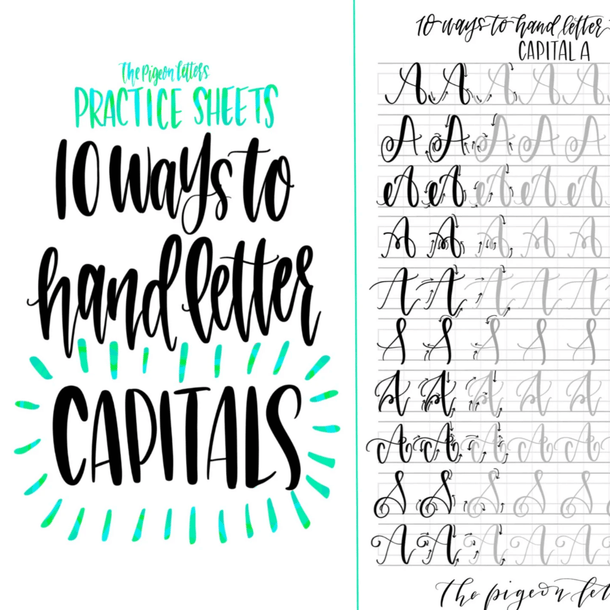 The Pigeon Letters
PRACTICE SHEETS
10 ways to
hand letter
CAPITALS
10 ways to hand letter
CAPITAL A
A A A A A
A A A A A
A A A A A
A A A A A
A A A A A
A A A A A
A A A A A
A A A A A
A A A A A
A A A A A
the pigeon let